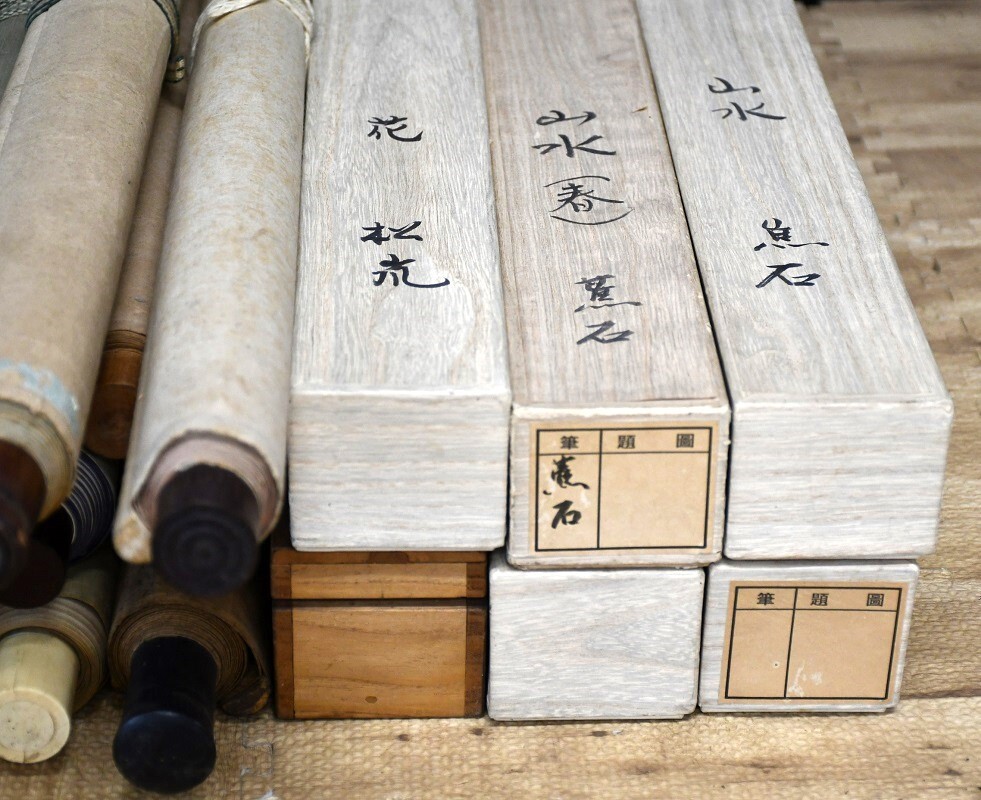 花
松
山水
(春)
蕉石
山水
焦石
筆 題 圖
蕉石
筆 題 圖